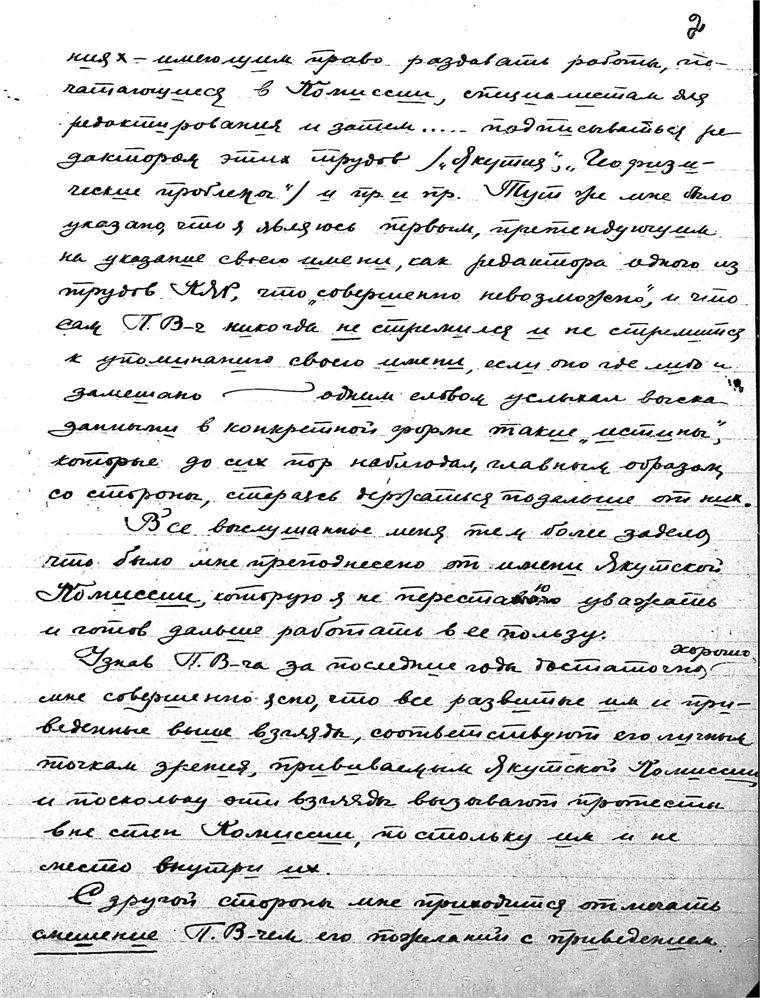 2
ниях – имеющим право раздавать работы, пе-
чатающиеся в Комиссии, специалистам для
редактирования и затем ..... подписываться ре-
дактором этих трудов /„Якутия“, „Геофизи-
ческие проблемы“/ и пр. и пр. Тут же мне было
указано, что я являюсь первым, претендующим
на указание своего имени, как редактора одного из
трудов КЯР, что „совершенно невозможно“, и что
сам П. В-ч никогда не стремился и не стремится
к упоминанию своего имени, если оно где либо и
замешано — одним словом услыхал выска-
занными в конкретной форме такие „истины“,
которые до сих пор наблюдал, главным образом,
со стороны, стараясь держаться подальше от них.
Все выслушанное меня тем более задело,
что было мне преподнесено от имени Якутской
Комиссии, которую я не перестаю уважать
и готов дальше работать в ее пользу.
Узнав П. В-ча за последние годы достаточно хорошо,
мне совершенно ясно, что все развитые им и при-
веденные выше взгляды, соответствуют его личным
точкам зрения, прививаемым Якутской Комиссии
и поскольку эти взгляды вызывают протесты
вне стен Комиссии, постольку им и не
место внутри их.
С другой стороны мне приходится отмечать
смешение П. В-чем его пожеланий с приведением